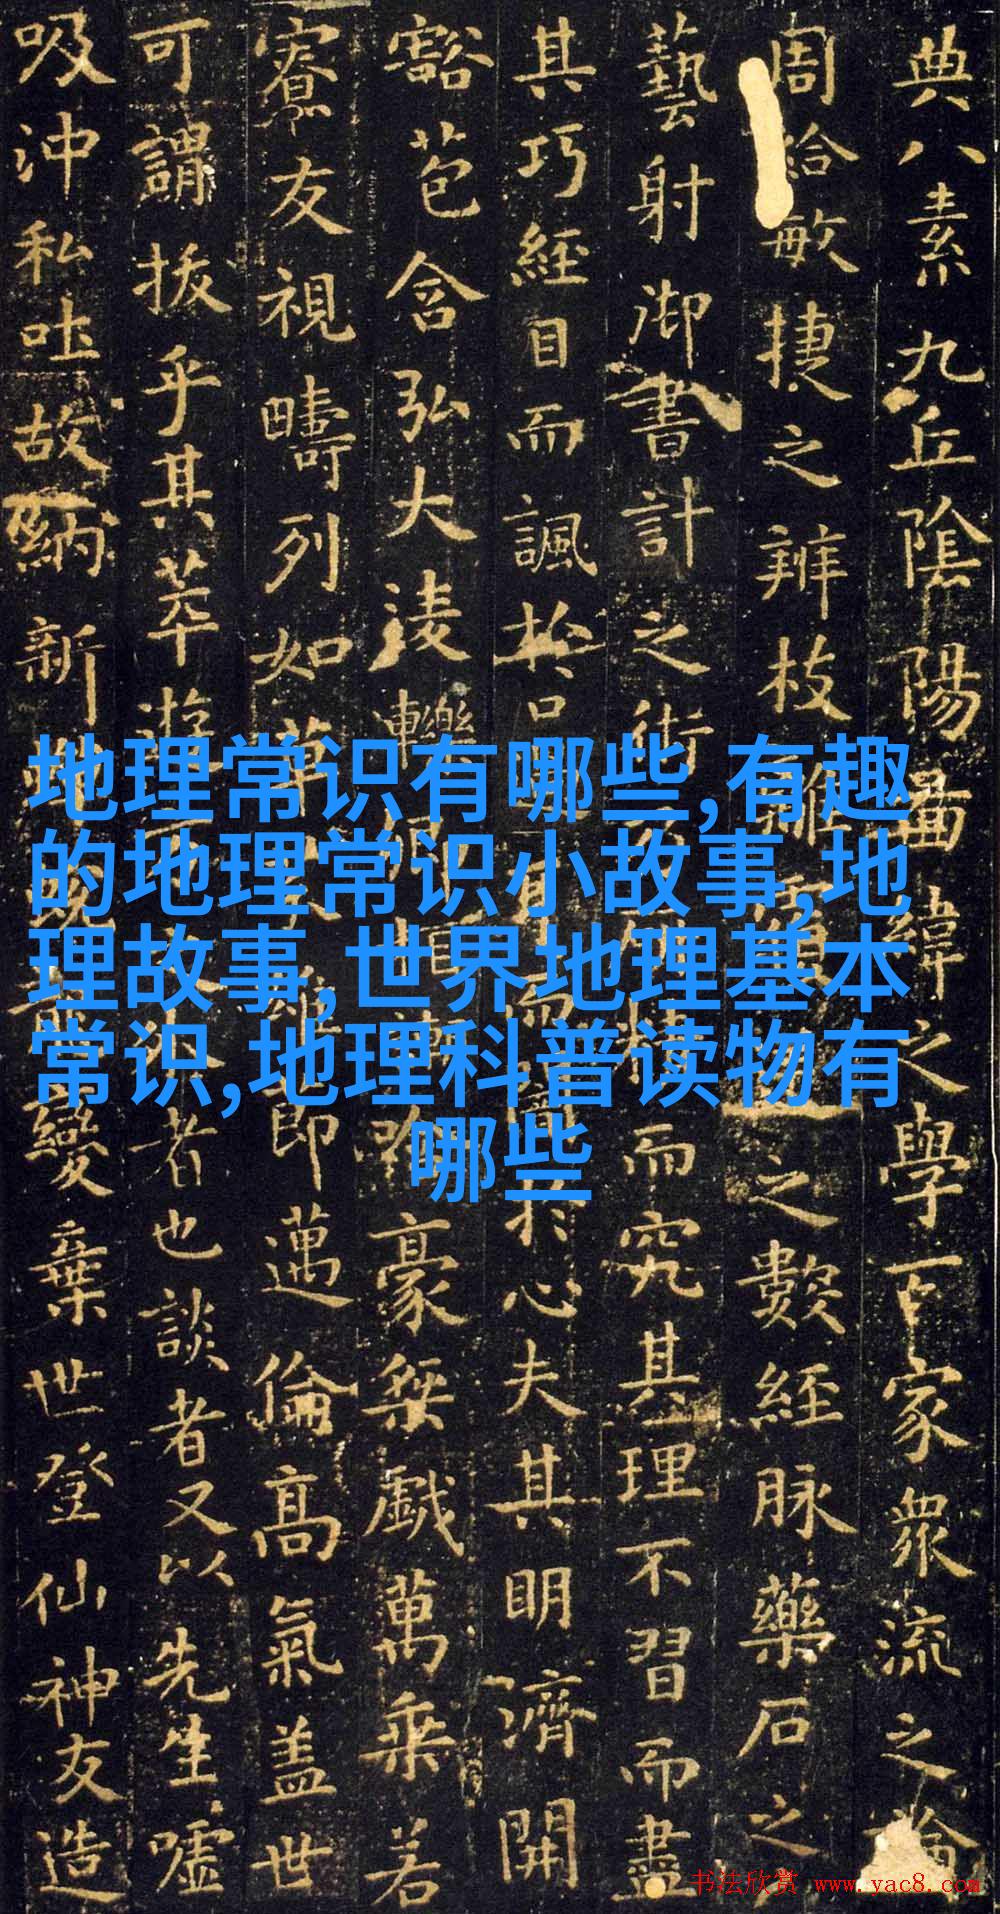 地理常识有哪些,有趣
的地理常识小故事,地
理故事,世界地理基本
常识,地理科普读物有
哪些
典八素九丘陰陽啚緯之學百家眾流之論
周給敏捷之辨枝離之數經脉藥石之
藝射御書計之術精而究其理不習而盡
其巧經目而諷於口耳而於心夫其明濟開
豁苞含弘大凌轢豪桀戲萬乘若
寮友視疇列如草邁倫高氣蓋世
可謂拔乎其萃遊者也談者又以先生噓
吸沖私吐故納新變棄世登仙神友造
书法欣赏 www.yac8.com